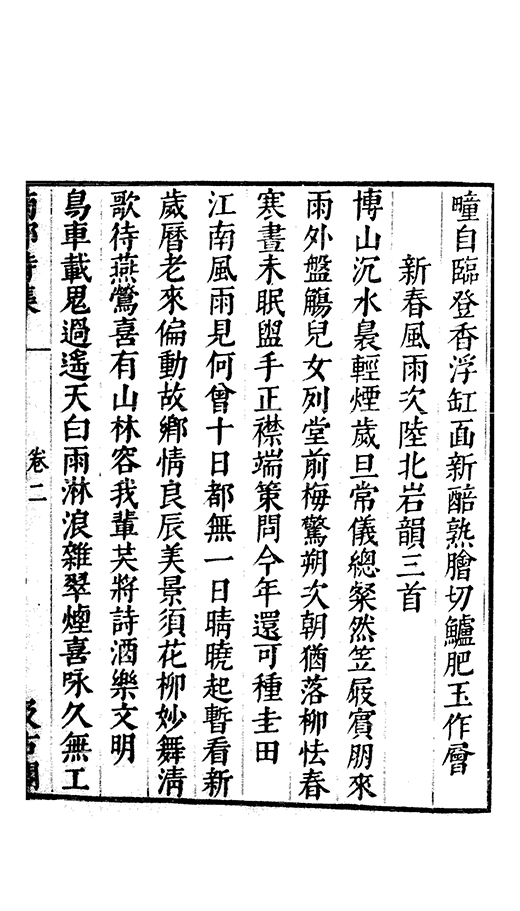 疃自臨登香浮缸面新醅熟膾切鱸肥玉作層
新春風雨次陸北岩韻三首
博山沉水裊輕煙歲旦常儀總粲然笠屐賓朋來
雨外盤觴兒女列堂前梅驚朔次朝猶落柳怯春
寒晝未眠盥手正襟端策問今年還可種圭田
江南風雨見何曾十日都無一日晴曉起暫看新
歲曆老來偏動故鄉情良辰美景須花柳妙舞清
歌待燕鶯喜有山林容我輩共將詩酒樂文明
鳥車載鬼過遙天白雨淋浪雜翠煙喜咏久無工
卷二